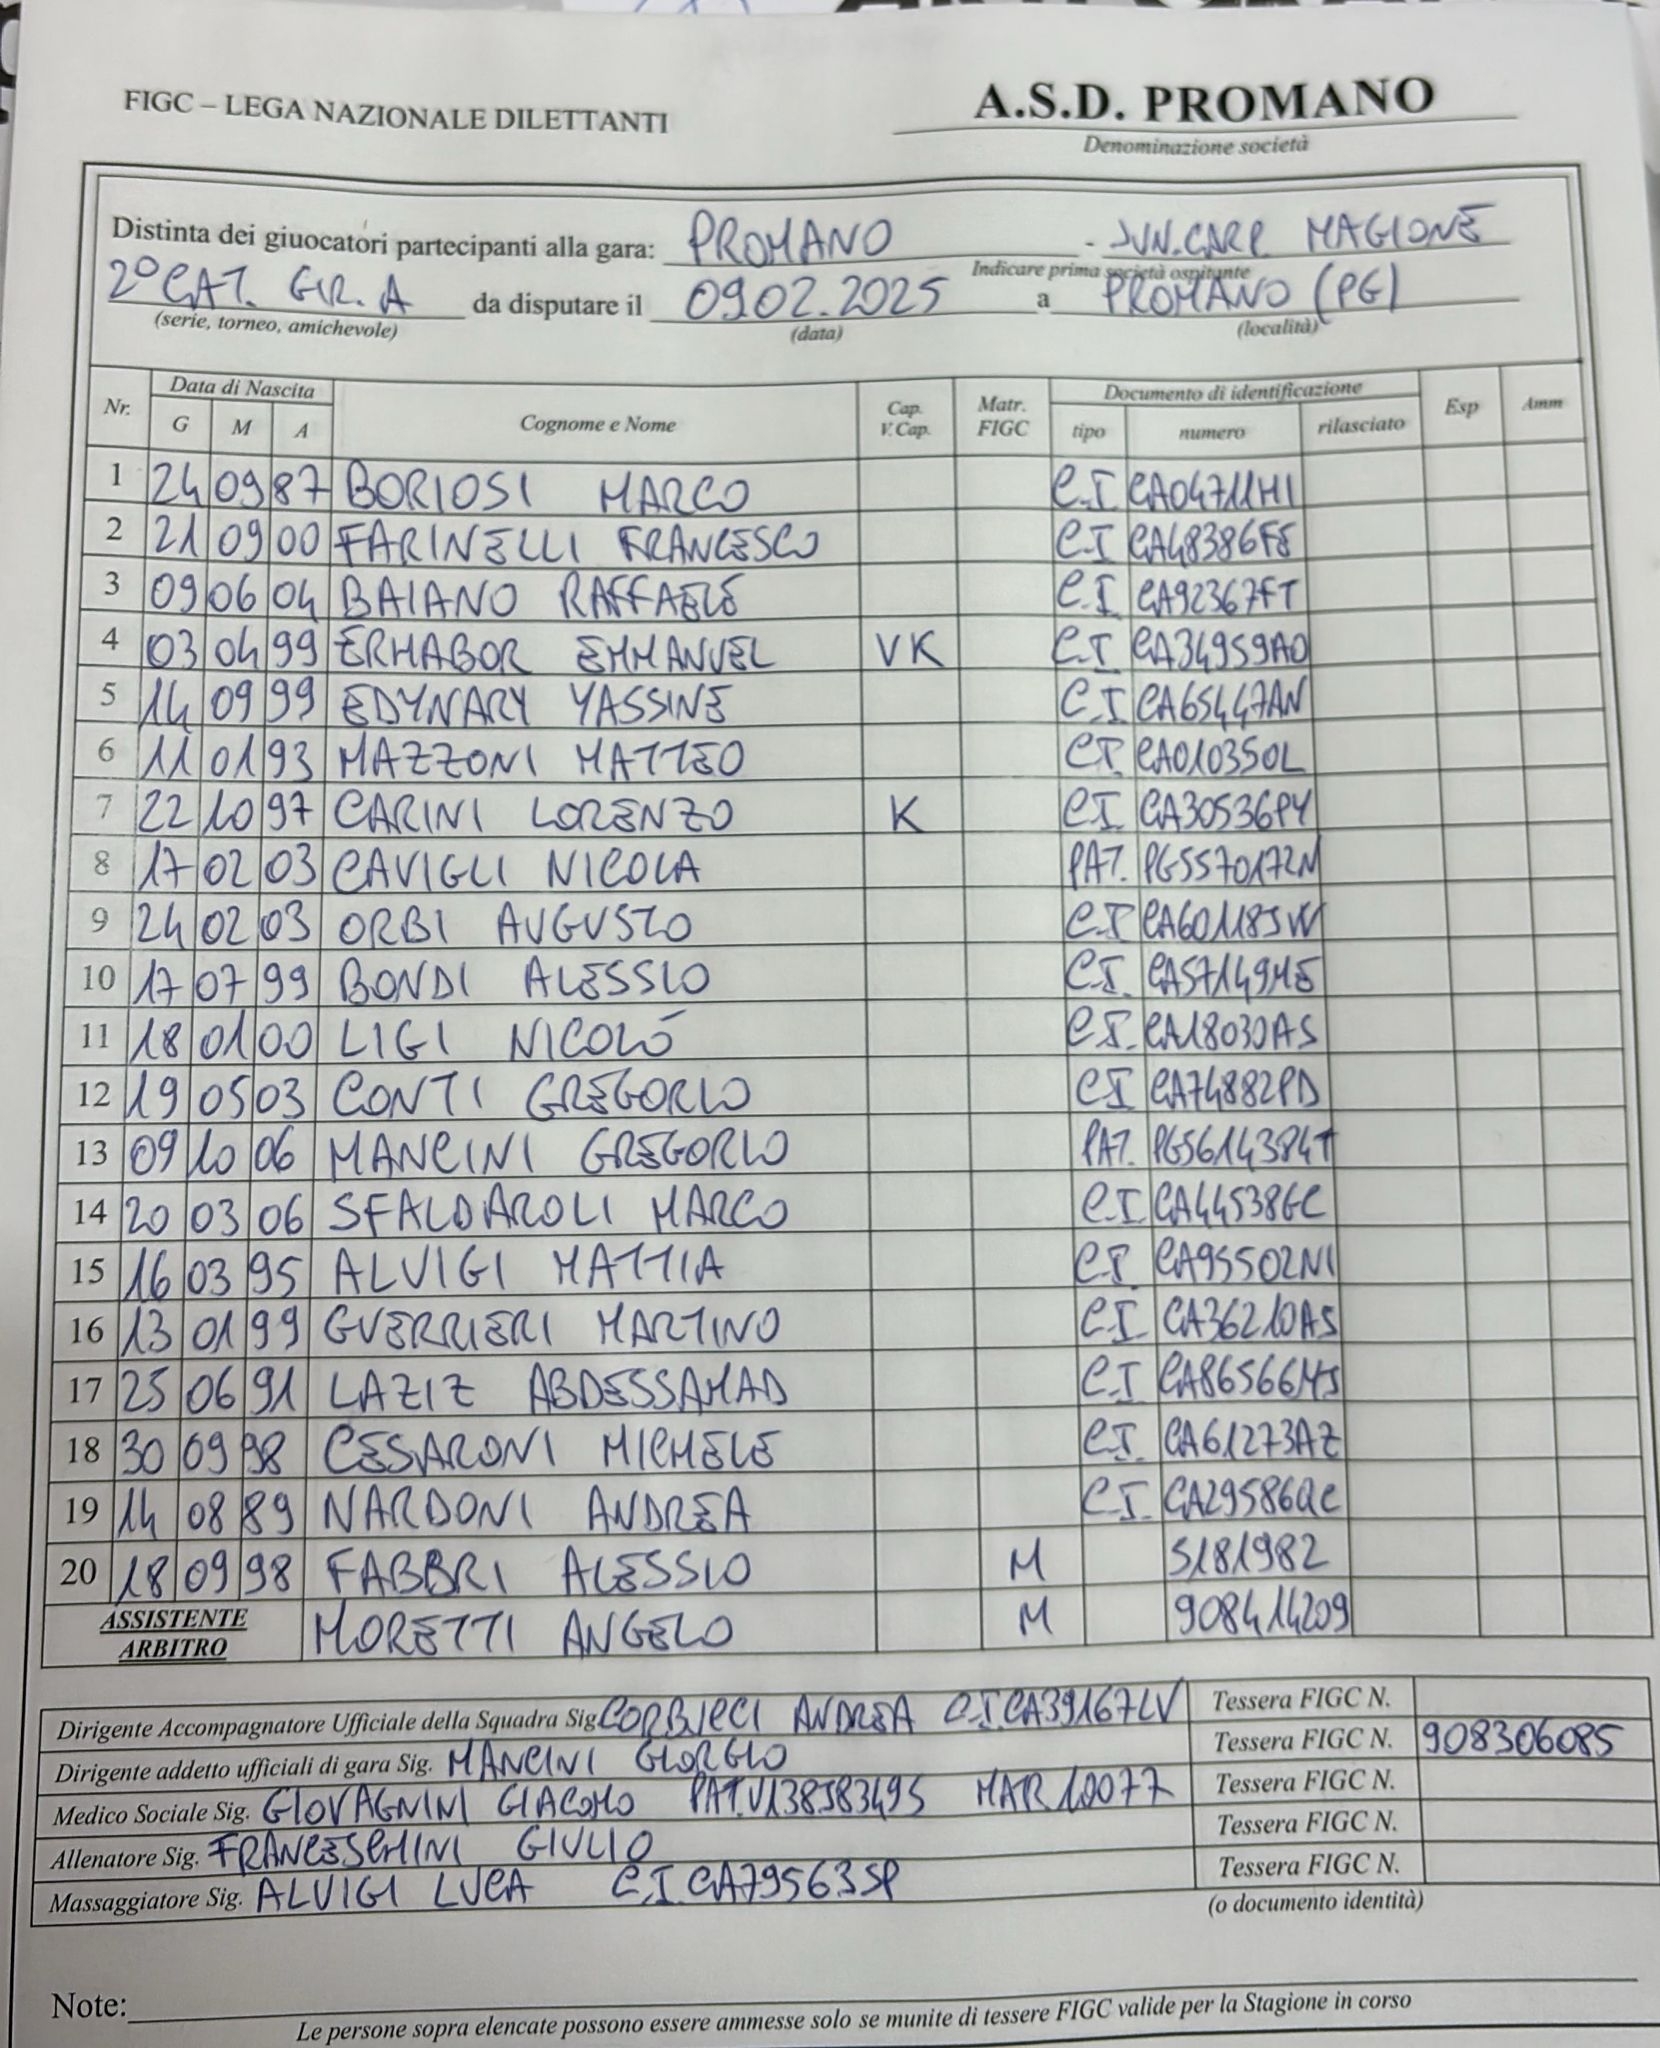 FIGC – LEGA NAZIONALE DILETTANTI
A.S.D. PROMANO
Denominazione società
Distinta dei giuocatori partecipanti alla gara: PROMANO - JUN.CARP. MAGIONE
Indicare prima società ospitante
2° CAT. GIR. A da disputare il 09.02.2025 a PROMANO (PG)
(serie, torneo, amichevole) (data) (località)
Nr. Data di Nascita Cognome e Nome Cap. V.Cap. Matr. FIGC Documento di identificazione Esp Amm
G M A tipo numero rilasciato
1 24 09 87 BORIOSI MARCO C.I CA04711HI
2 21 09 00 FARINELLI FRANCESCO C.I CA48386FE
3 09 06 04 BAIANO RAFFAELE C.I CA92367FT
4 03 04 99 ERHABOR EMMANUEL VK C.I CA34959AO
5 14 09 99 EDYNARY YASSINE C.I CA65447AN
6 11 01 93 MAZZONI MATTEO C.I. CA01035OL
7 22 10 97 CARINI LORENZO K C.I CA30536PY
8 17 02 03 CAVIGLI NICOLA PAT. PG5570172N
9 24 02 03 ORBI AUGUSTO C.I CA60118JW
10 17 07 99 BONDI ALESSIO C.I. CA57149ME
11 18 01 00 LIGI NICOLÓ C.I. CA18030AS
12 19 05 03 CONTI GREGORIO C.I CA74882PD
13 09 10 06 MANCINI GREGORIO PAT. PG5614384T
14 20 03 06 SFALDAROLI MARCO C.I. CA44538GC
15 16 03 95 ALUIGI MATTIA C.I. CA95502NI
16 13 01 99 GUERRIERI MARTINO C.I. CA36210AS
17 25 06 91 LAZIZ ABDESSAMAD C.I CA86566MJ
18 30 09 98 CESARONI MICHELE C.I. CA61273AZ
19 14 08 89 NARDONI ANDREA C.I. CA29586QC
20 18 09 98 FABBRI ALESSIO M 5181982
ASSISTENTE ARBITRO MORETTI ANGELO M 908414209
Dirigente Accompagnatore Ufficiale della Squadra Sig. ANDREA C.I CA39167LV Tessera FIGC N.
Dirigente addetto ufficiali di gara Sig. MANCINI GIORGIO Tessera FIGC N. 908306085
Medico Sociale Sig. GIOVAGNINI GIACOMO MAR 10077 Tessera FIGC N.
Allenatore Sig. FRANCESCHINI GIULIO Tessera FIGC N.
Massaggiatore Sig. ALUIGI LUCA C.I CA79563SP Tessera FIGC N.
(o documento identità)
Note:
Le persone sopra elencate possono essere ammesse solo se munite di tessere FIGC valide per la Stagione in corso